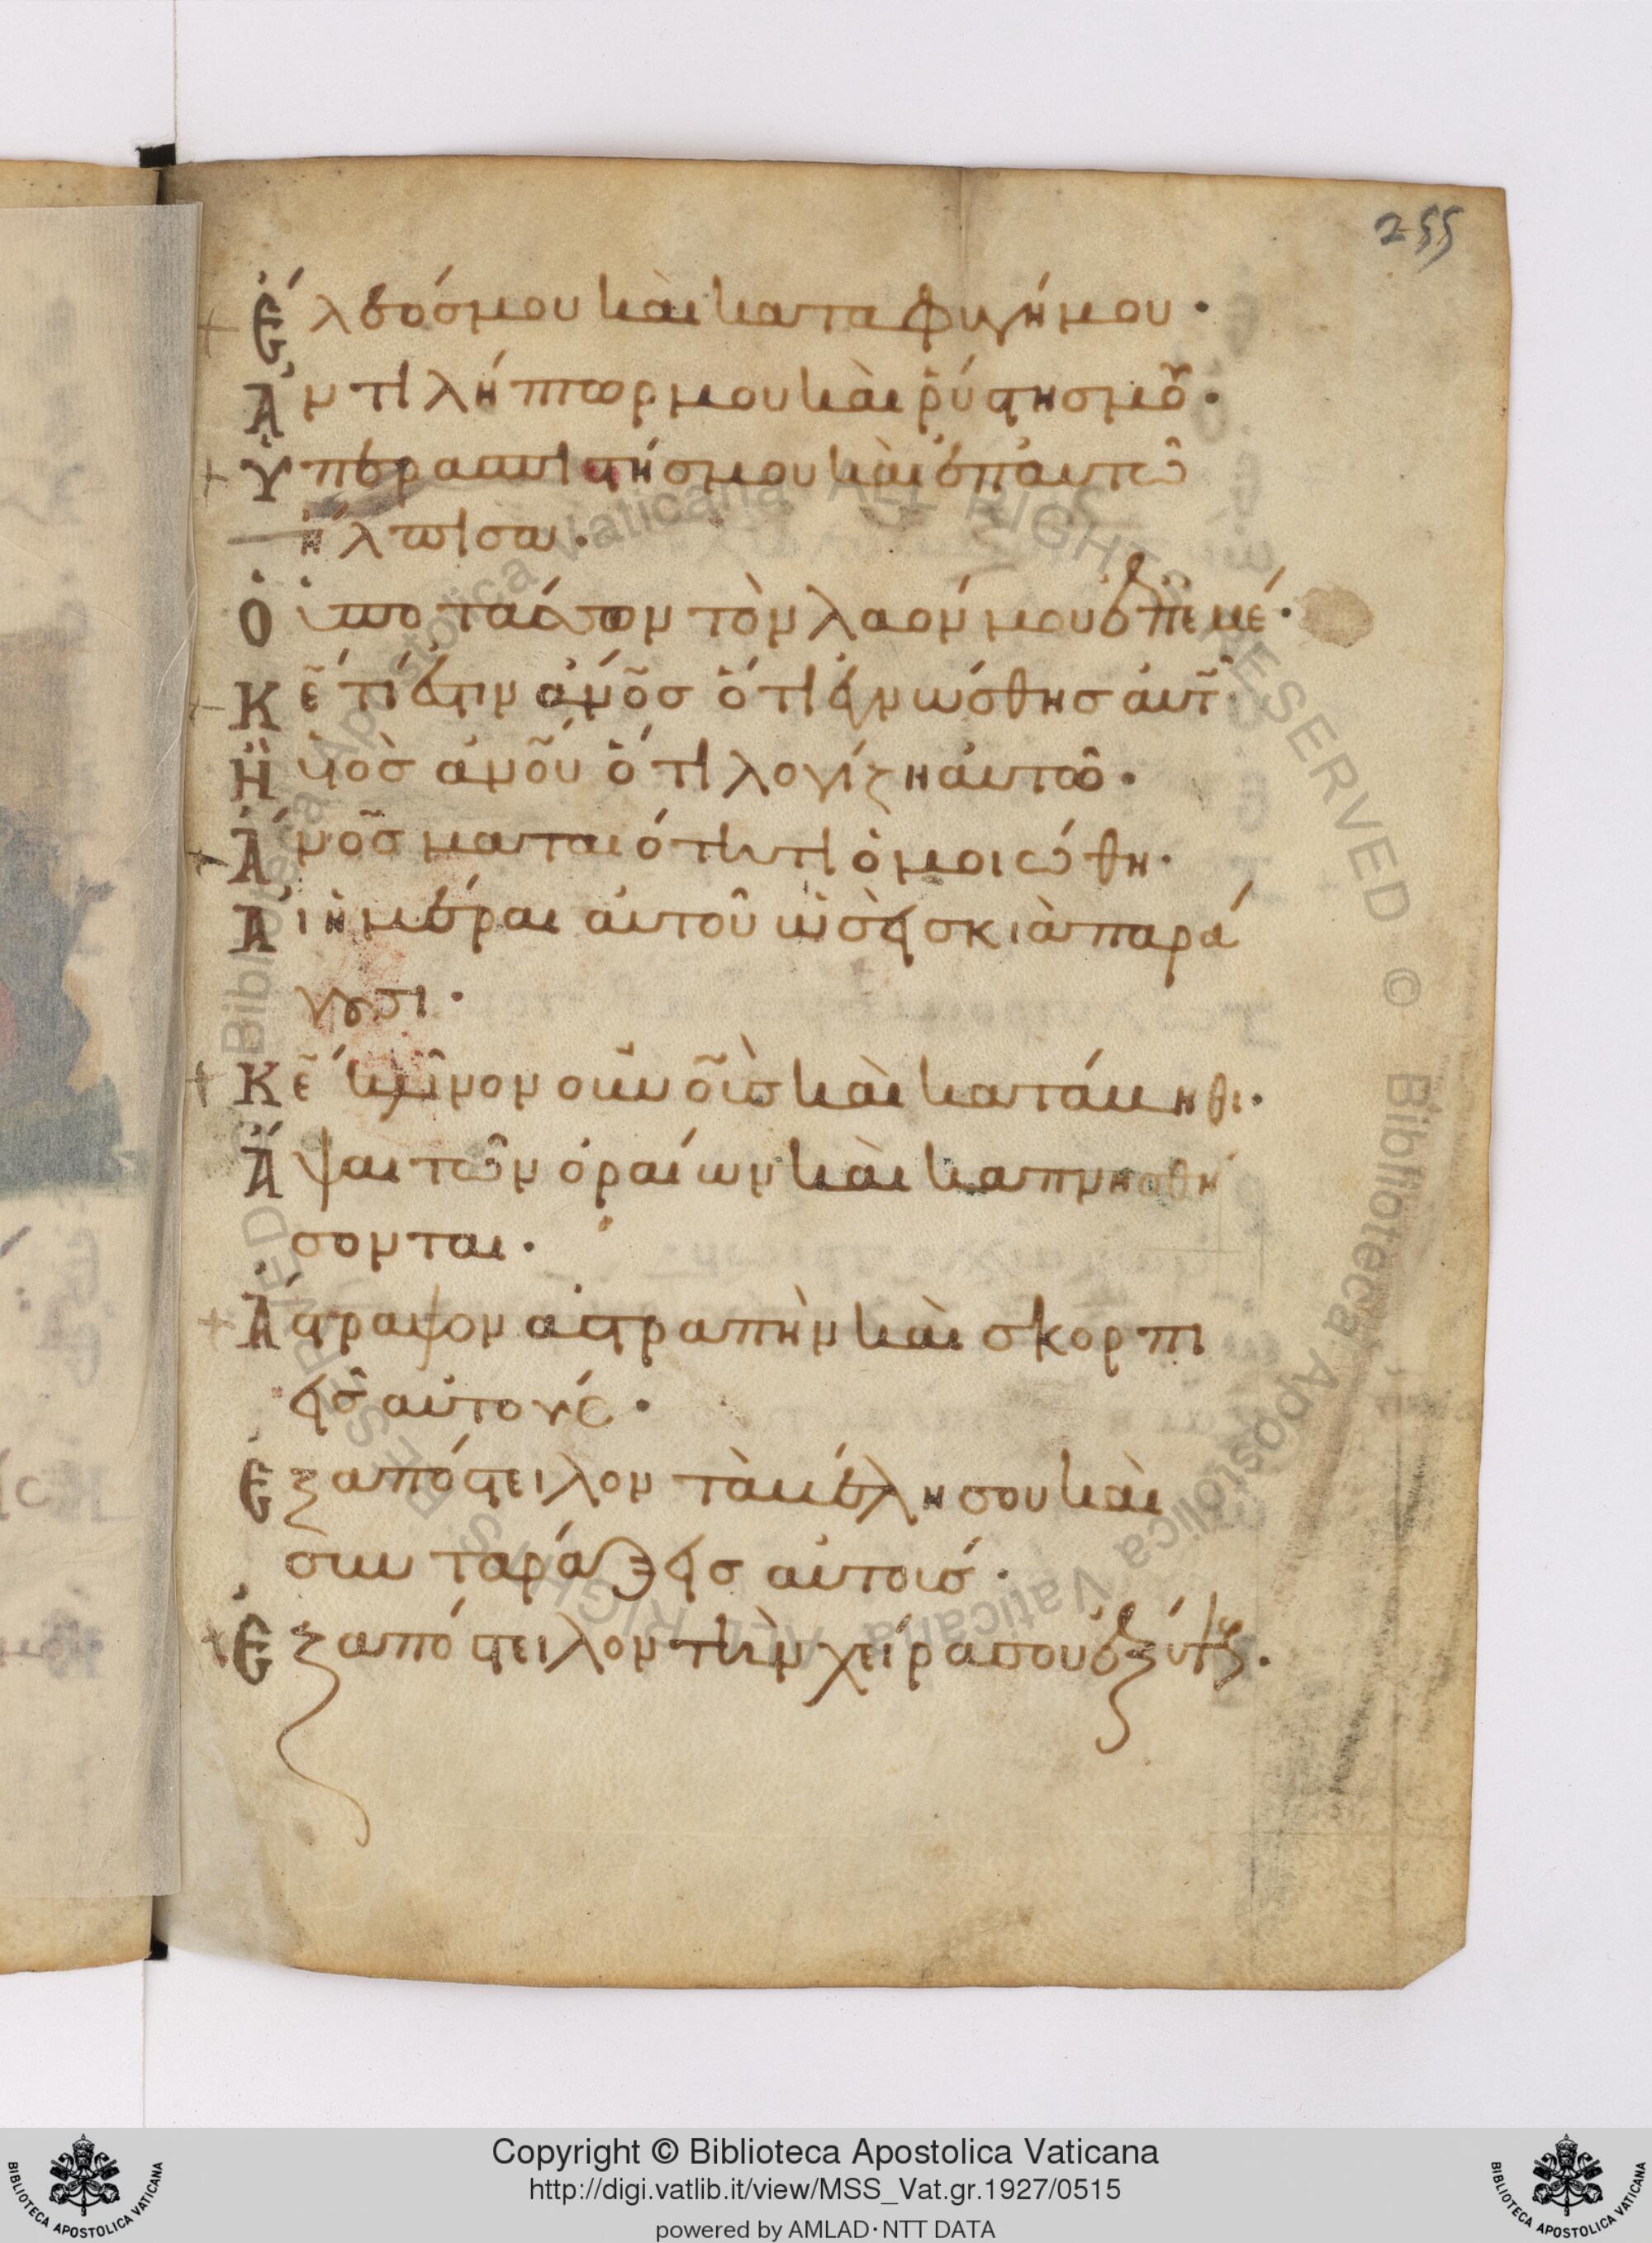 255
Ἔλεόσ μου καὶ καταφυγή μου·
Ἀντιλήπτωρ μου καὶ ῥύστησ μου·
Ὑπερασπιστήσ μου καὶ ἐπ' αυτῶ
ἤλπισα·
Ὁ ὑποτάσσων τὸν λαόν μου ὑπ' εμέ·
Κε̄ τί ἐστιν ἄνο̄σ ὅτι ἐγνώσθησ αυτ
Ἢ υἱὸσ ἀνο̄υ ὅτι λογίζη αυτῶ·
Ἄνο̄σ ματαιότητι ὁμοιώθη·
Αἱ ἡμέραι αυτοῦ ὡσεὶ σκιὰ παρά
γουσι·
Κε̄ κλῖνον ουνο̄υσ καὶ κατάβηθι·
Ἅψαι τῶν ὀραίων καὶ καπνησθή
σονται·
Ἄστραψον ἀστραπὴν καὶ σκορπι
εῖσ αὐτούσ·
Ἐξαπόστειλον τὰ βέλη σου καὶ
συν ταράξεισ αὐτοισ·
Ἐξαπόστειλον τὴν χεῖρα σου ἐξ ύψ·
Copyright © Biblioteca Apostolica Vaticana
http://digi.vatlib.it/view/MSS_Vat.gr.1927/0515
powered by AMLAD·NTT DATA
BIBLIOTECA APOSTOLICA VATICANA
BIBLIOTECA APOSTOLICA VATICANA
Biblioteca Apostolica Vaticana ALL RIGHTS RESERVED © Biblioteca Apostolica Vaticana ALL RIGHTS RESERVED